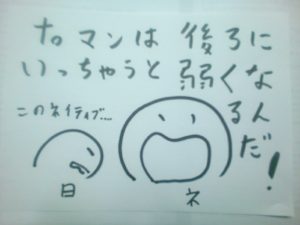 ナロマンは後ろに
いっちゃうと弱くな
るんだ!
このネイティブ....
日
ネ